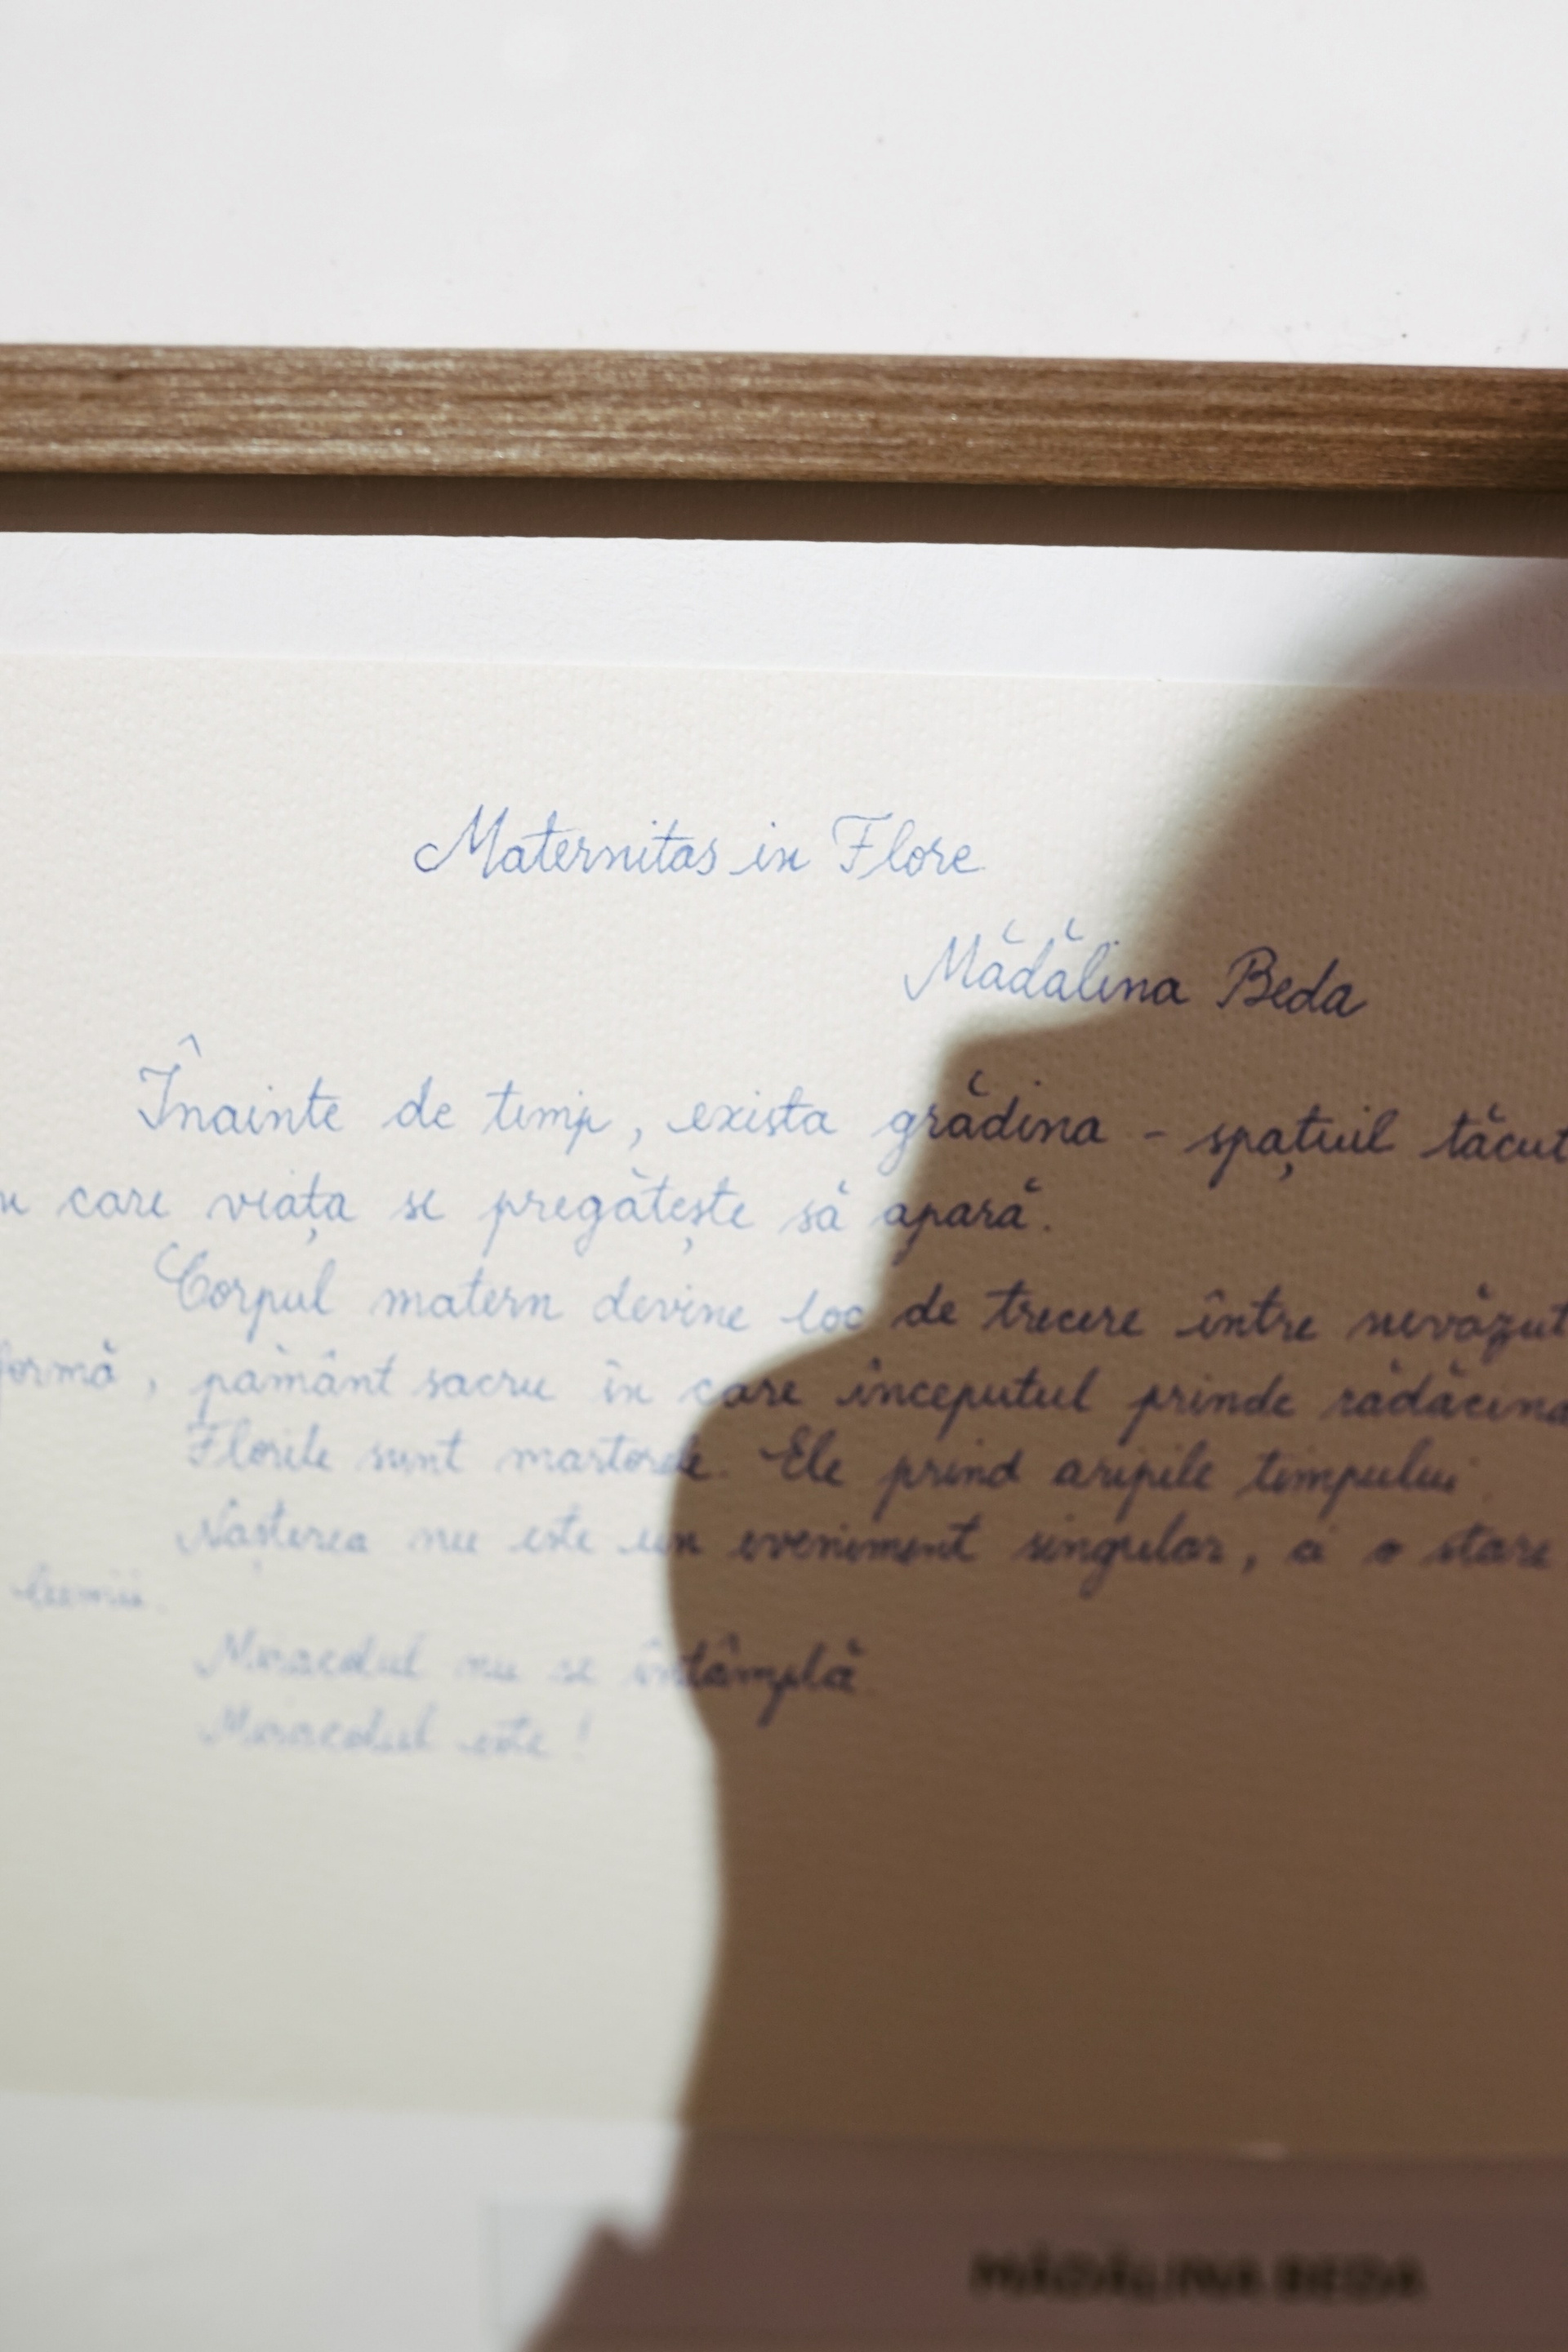 Maternitas in Flore
Mădălina Beda
Înainte de timp, exista grădina - spațiul tăcut
care viața se pregătește să apară.
Corpul matern devine loc de trecere între nevăzut
formă, pământ sacru în care începutul prinde rădăcină
Florile sunt martorele. Ele prind aripile timpului.
Nașterea nu este un eveniment singular, ci o stare
lumii.
Miracolul nu se întâmplă.
Miracolul este!
MĂDĂLINA BEDA